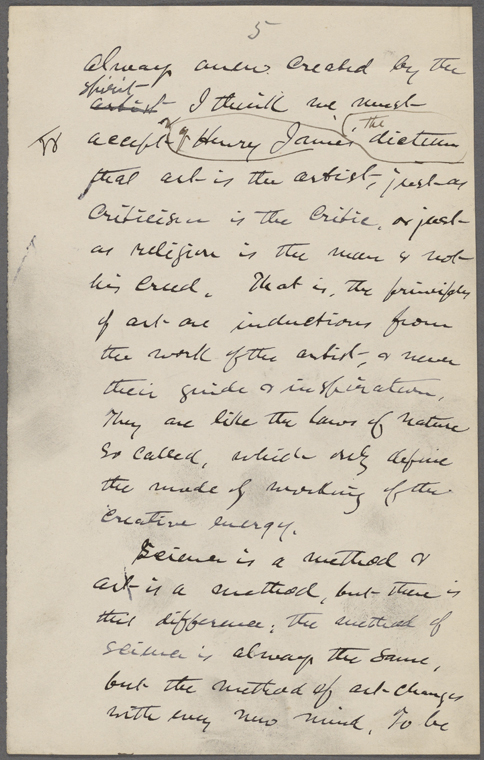 5
always anew created by the
spirit
artist I think we must
tr accept of Henry James, the dictum
that art is the artist, just as
Criticism is the Critic, or just
as religion is the man & not
his Creed. That is, the principles
of art are inductions from
the work of the artist, & never
their guide & inspiration.
They are like the laws of nature
so called, which only define
the mode of working of the
Creative energy.
Science is a method &
art is a method, but there is
this difference; the method of
science is always the same,
but the method of art changes
with every new mind. To be